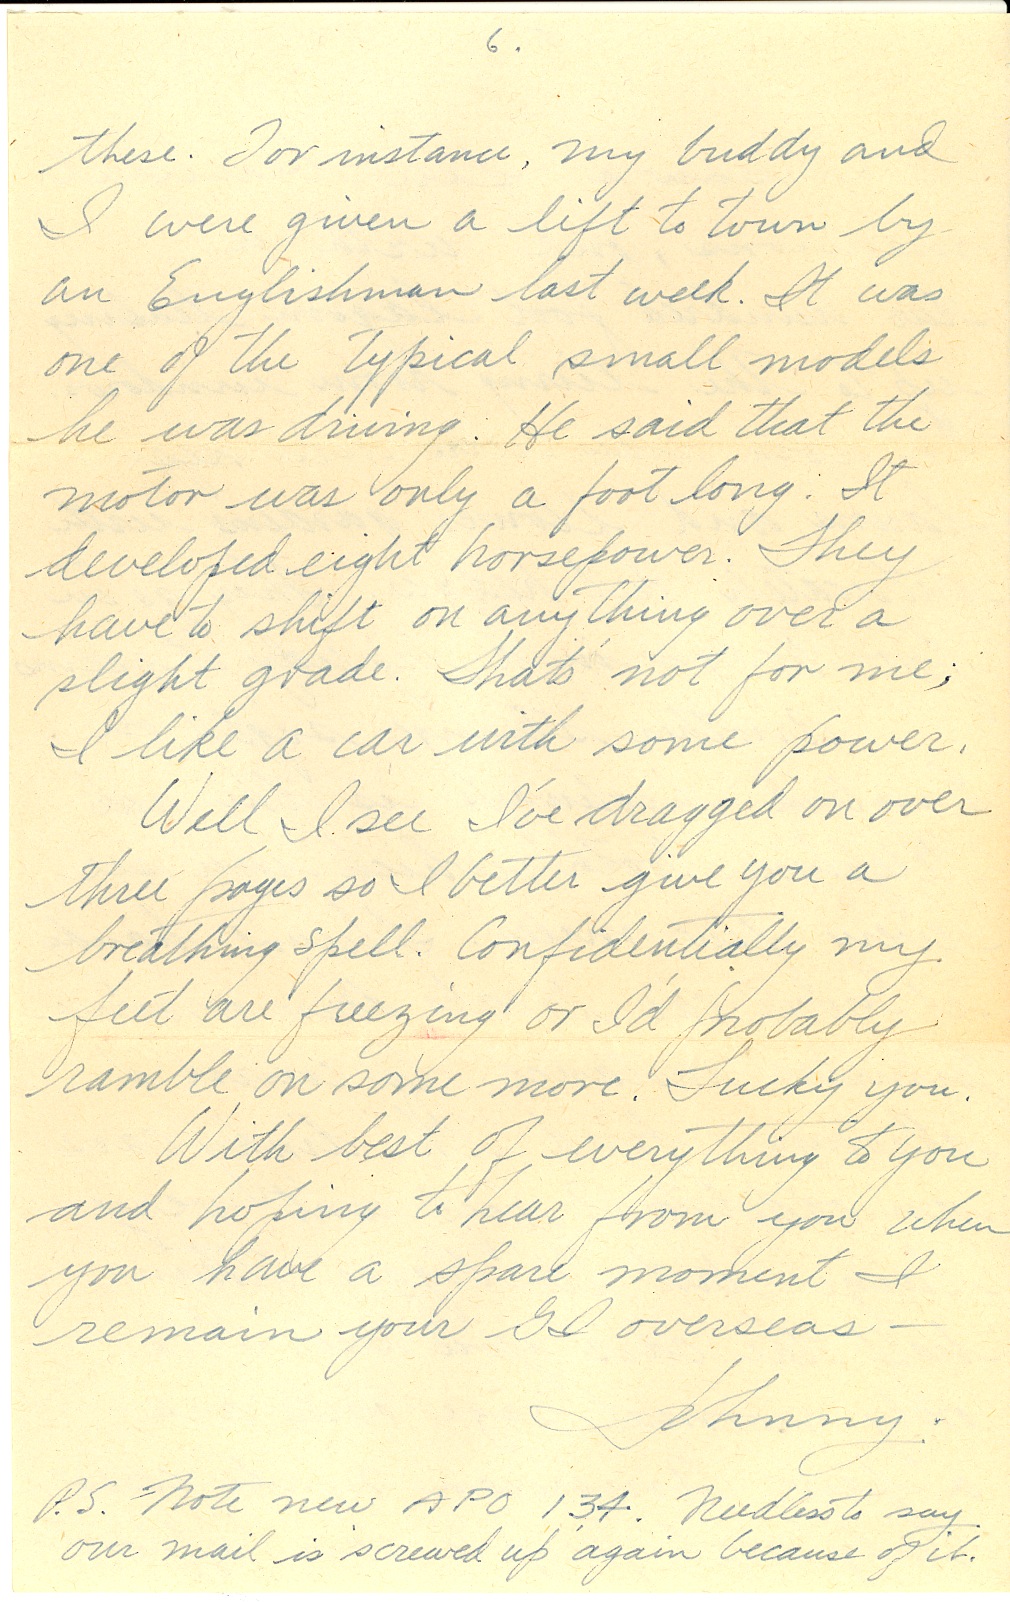 6.
these. For instance, my buddy and
I were given a lift to town by
an Englishman last week. It was
one of the typical small models
he was driving. He said that the
motor was only a foot long. It
developed eight horsepower. They
have to shift on anything over a
slight grade. Thats not for me;
I like a car with some power.
Well I see I've dragged on over
three pages so I better give you a
breathing spell. Confidentially my
feet are freezing or I'd probably
ramble on some more. Lucky you.
With best of everything to you
and hoping to hear from you when
you have a spare moment I
remain your GI overseas —
Johnny.
P.S. Note new APO 134. Needless to say
our mail is screwed up again because of it.